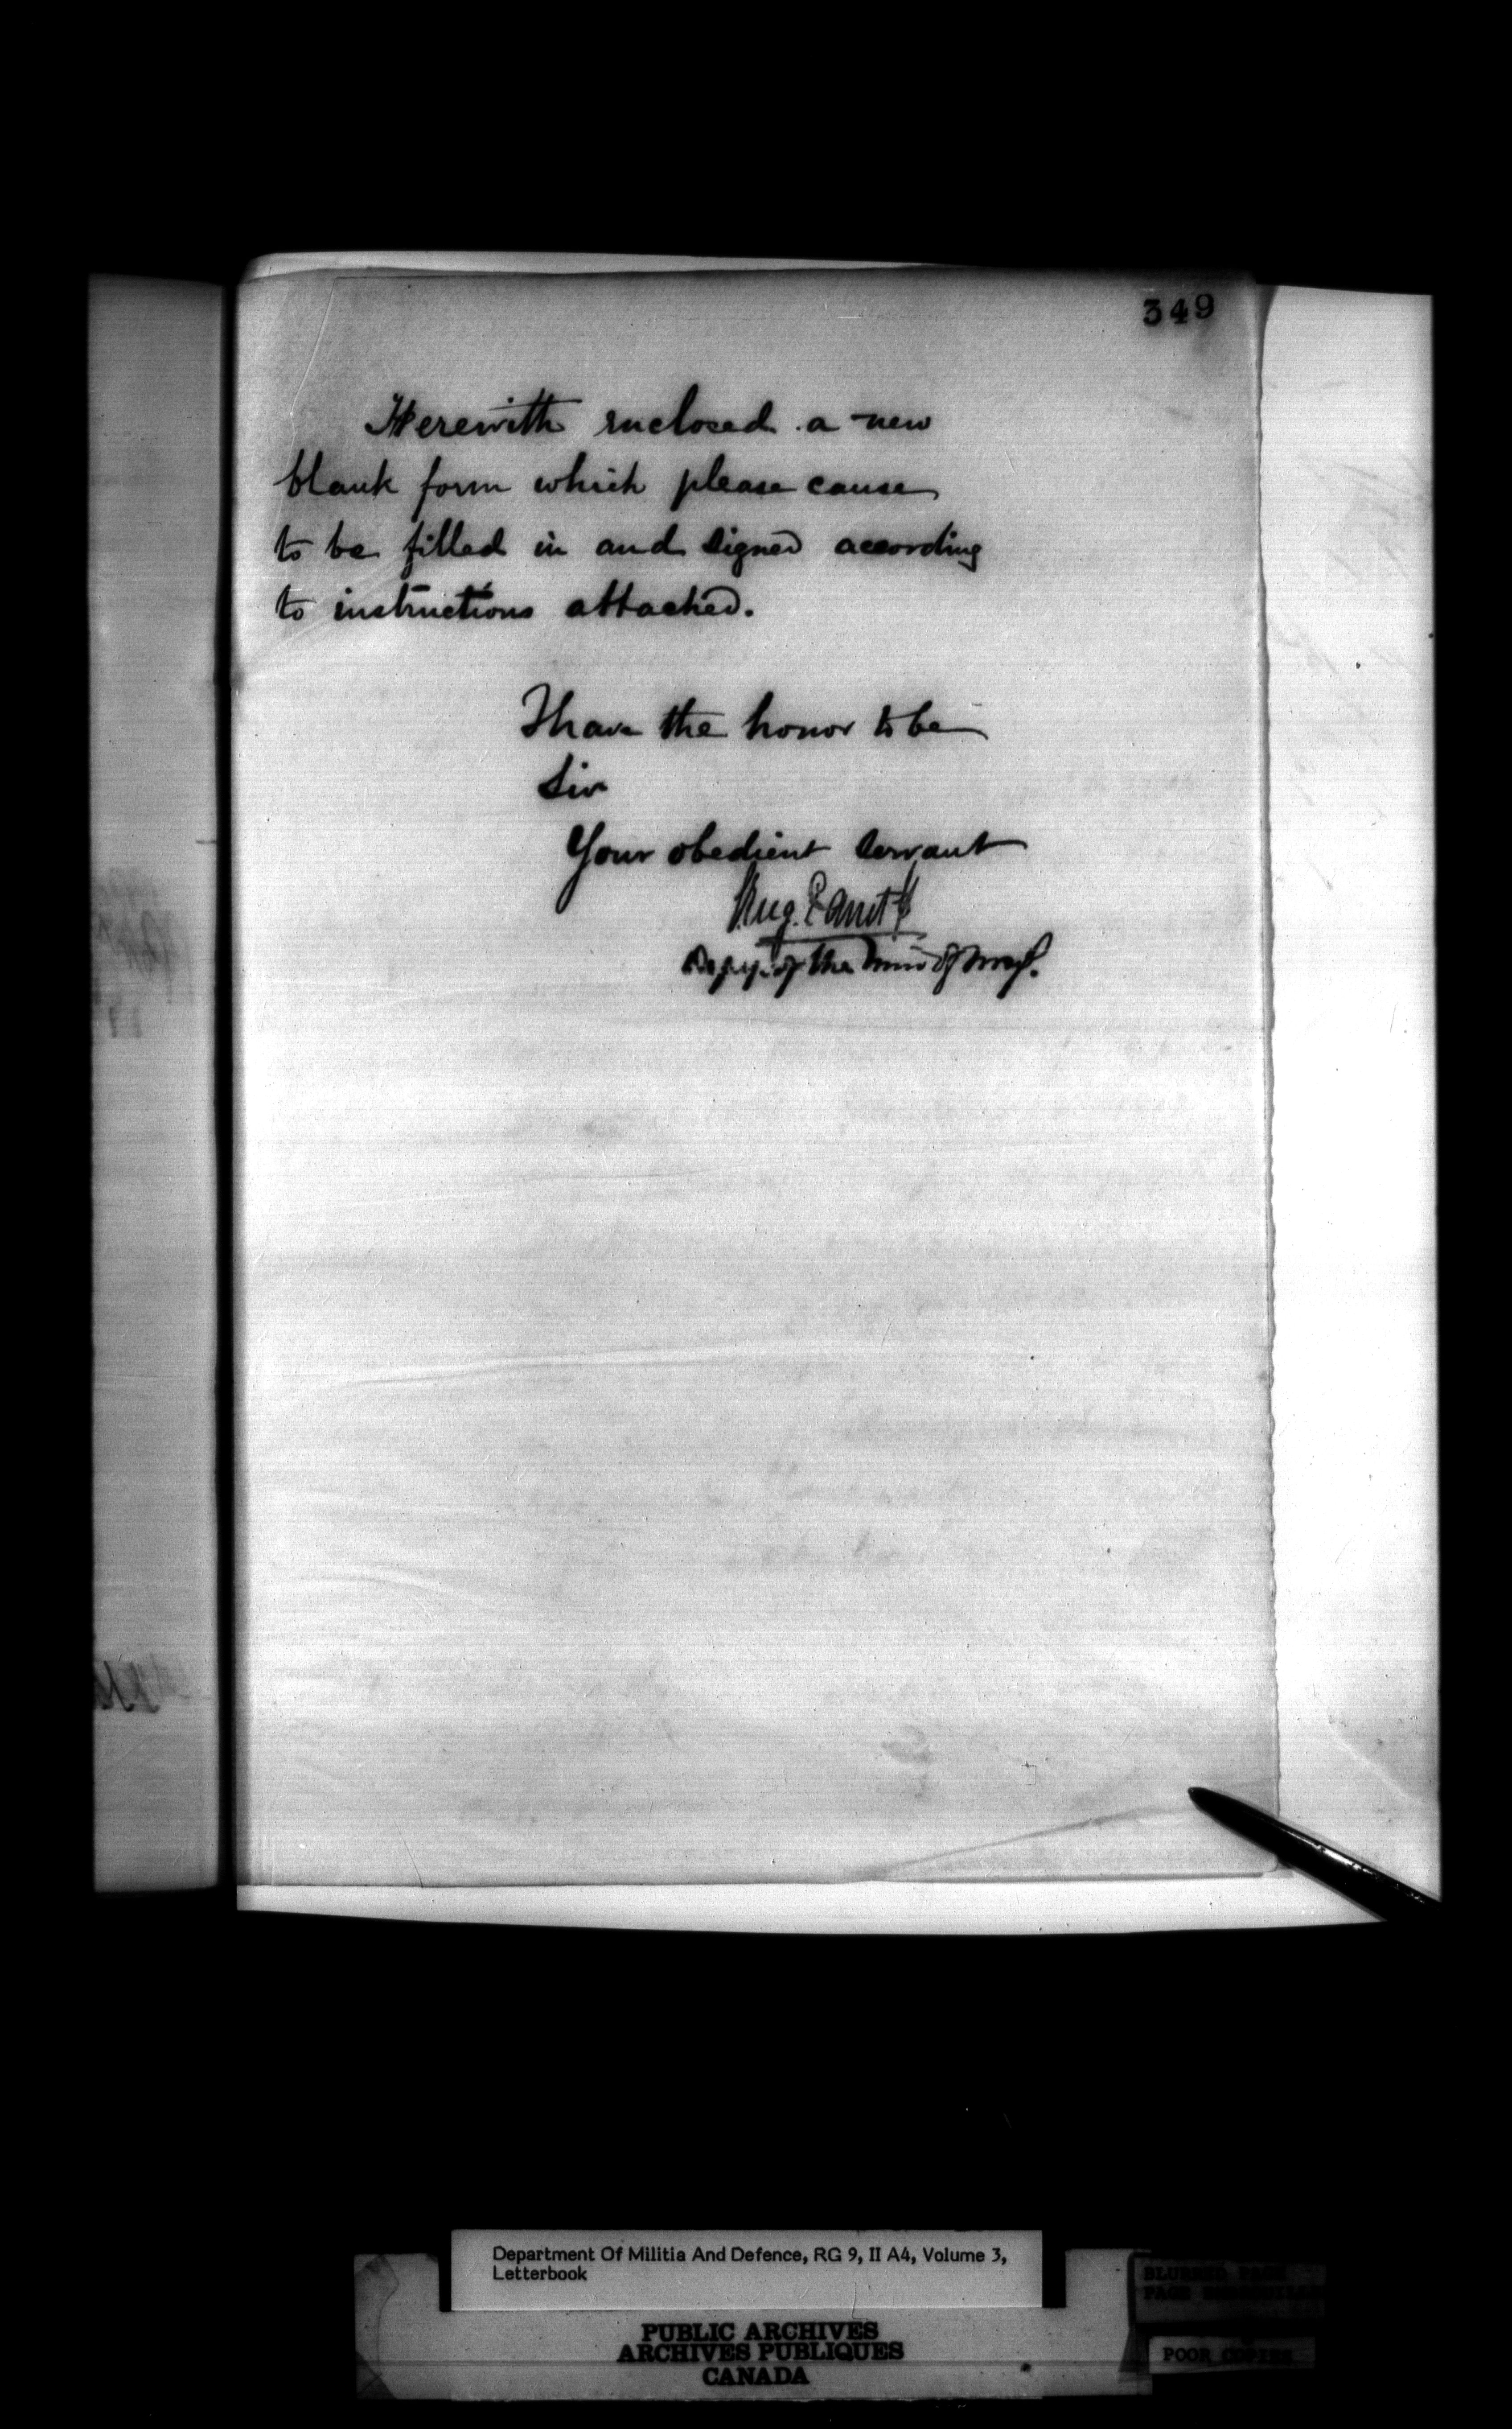 349
Herewith enclosed a new
blank form which please cause
to be filled in and signed according
to instructions attached.
I have the honor to be
Sir
Your obedient servant
Eug. Panet
of the Min of
Department Of Militia And Defence, RG 9, II A4, Volume 3,
Letterbook
PUBLIC ARCHIVES
ARCHIVES PUBLIQUES
CANADA
BLURRED PAGE
PAGE
POOR COPIES